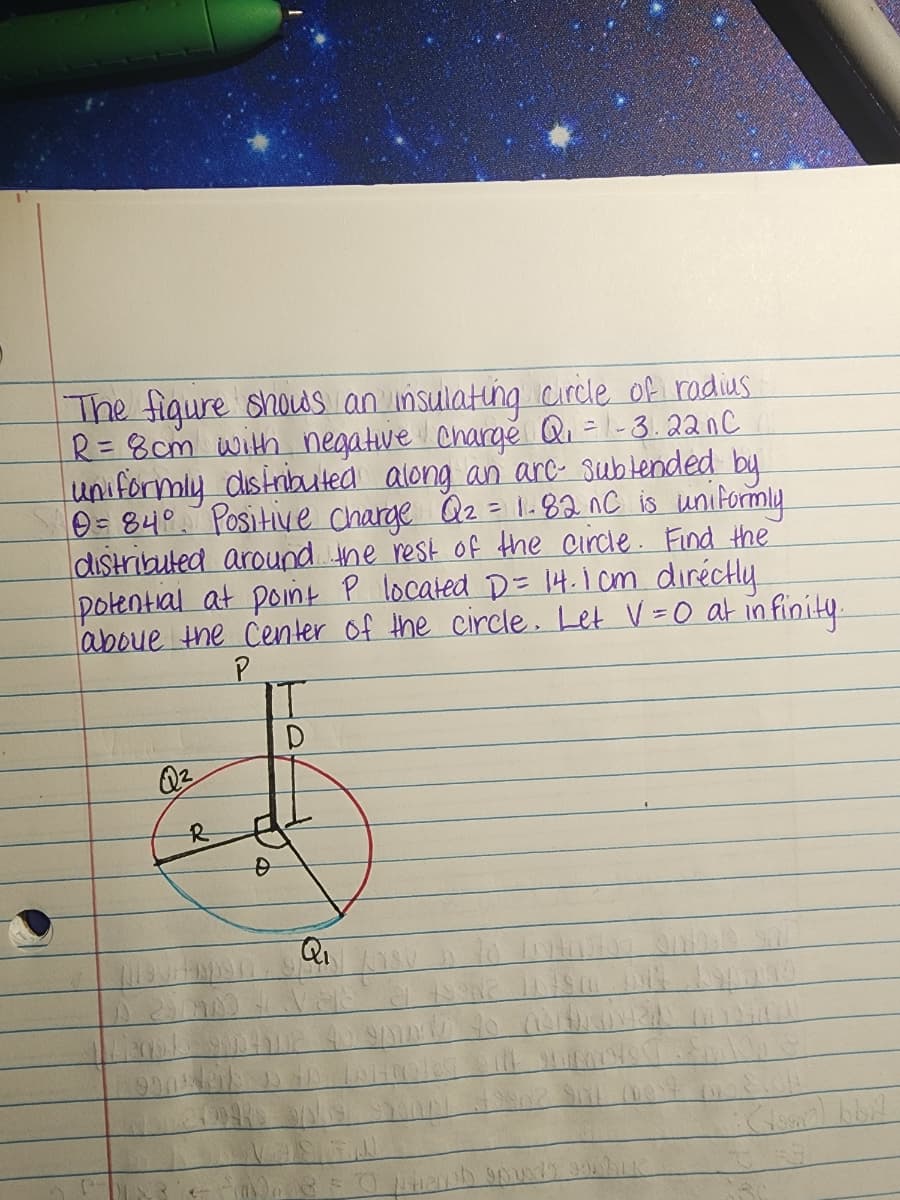 The figure shows an insulating circle of radius
R = 8cm with negative charge Q₁ = -3.22nC
uniformly distributed along an arc subtended by
θ = 84°. Positive charge Q2 = 1.82 nC is uniformly
distributed around the rest of the circle. Find the
potential at point P located D = 14.1cm directly
above the center of the circle. Let V=0 at infinity.
P
D
Q2
R
θ
Q₁